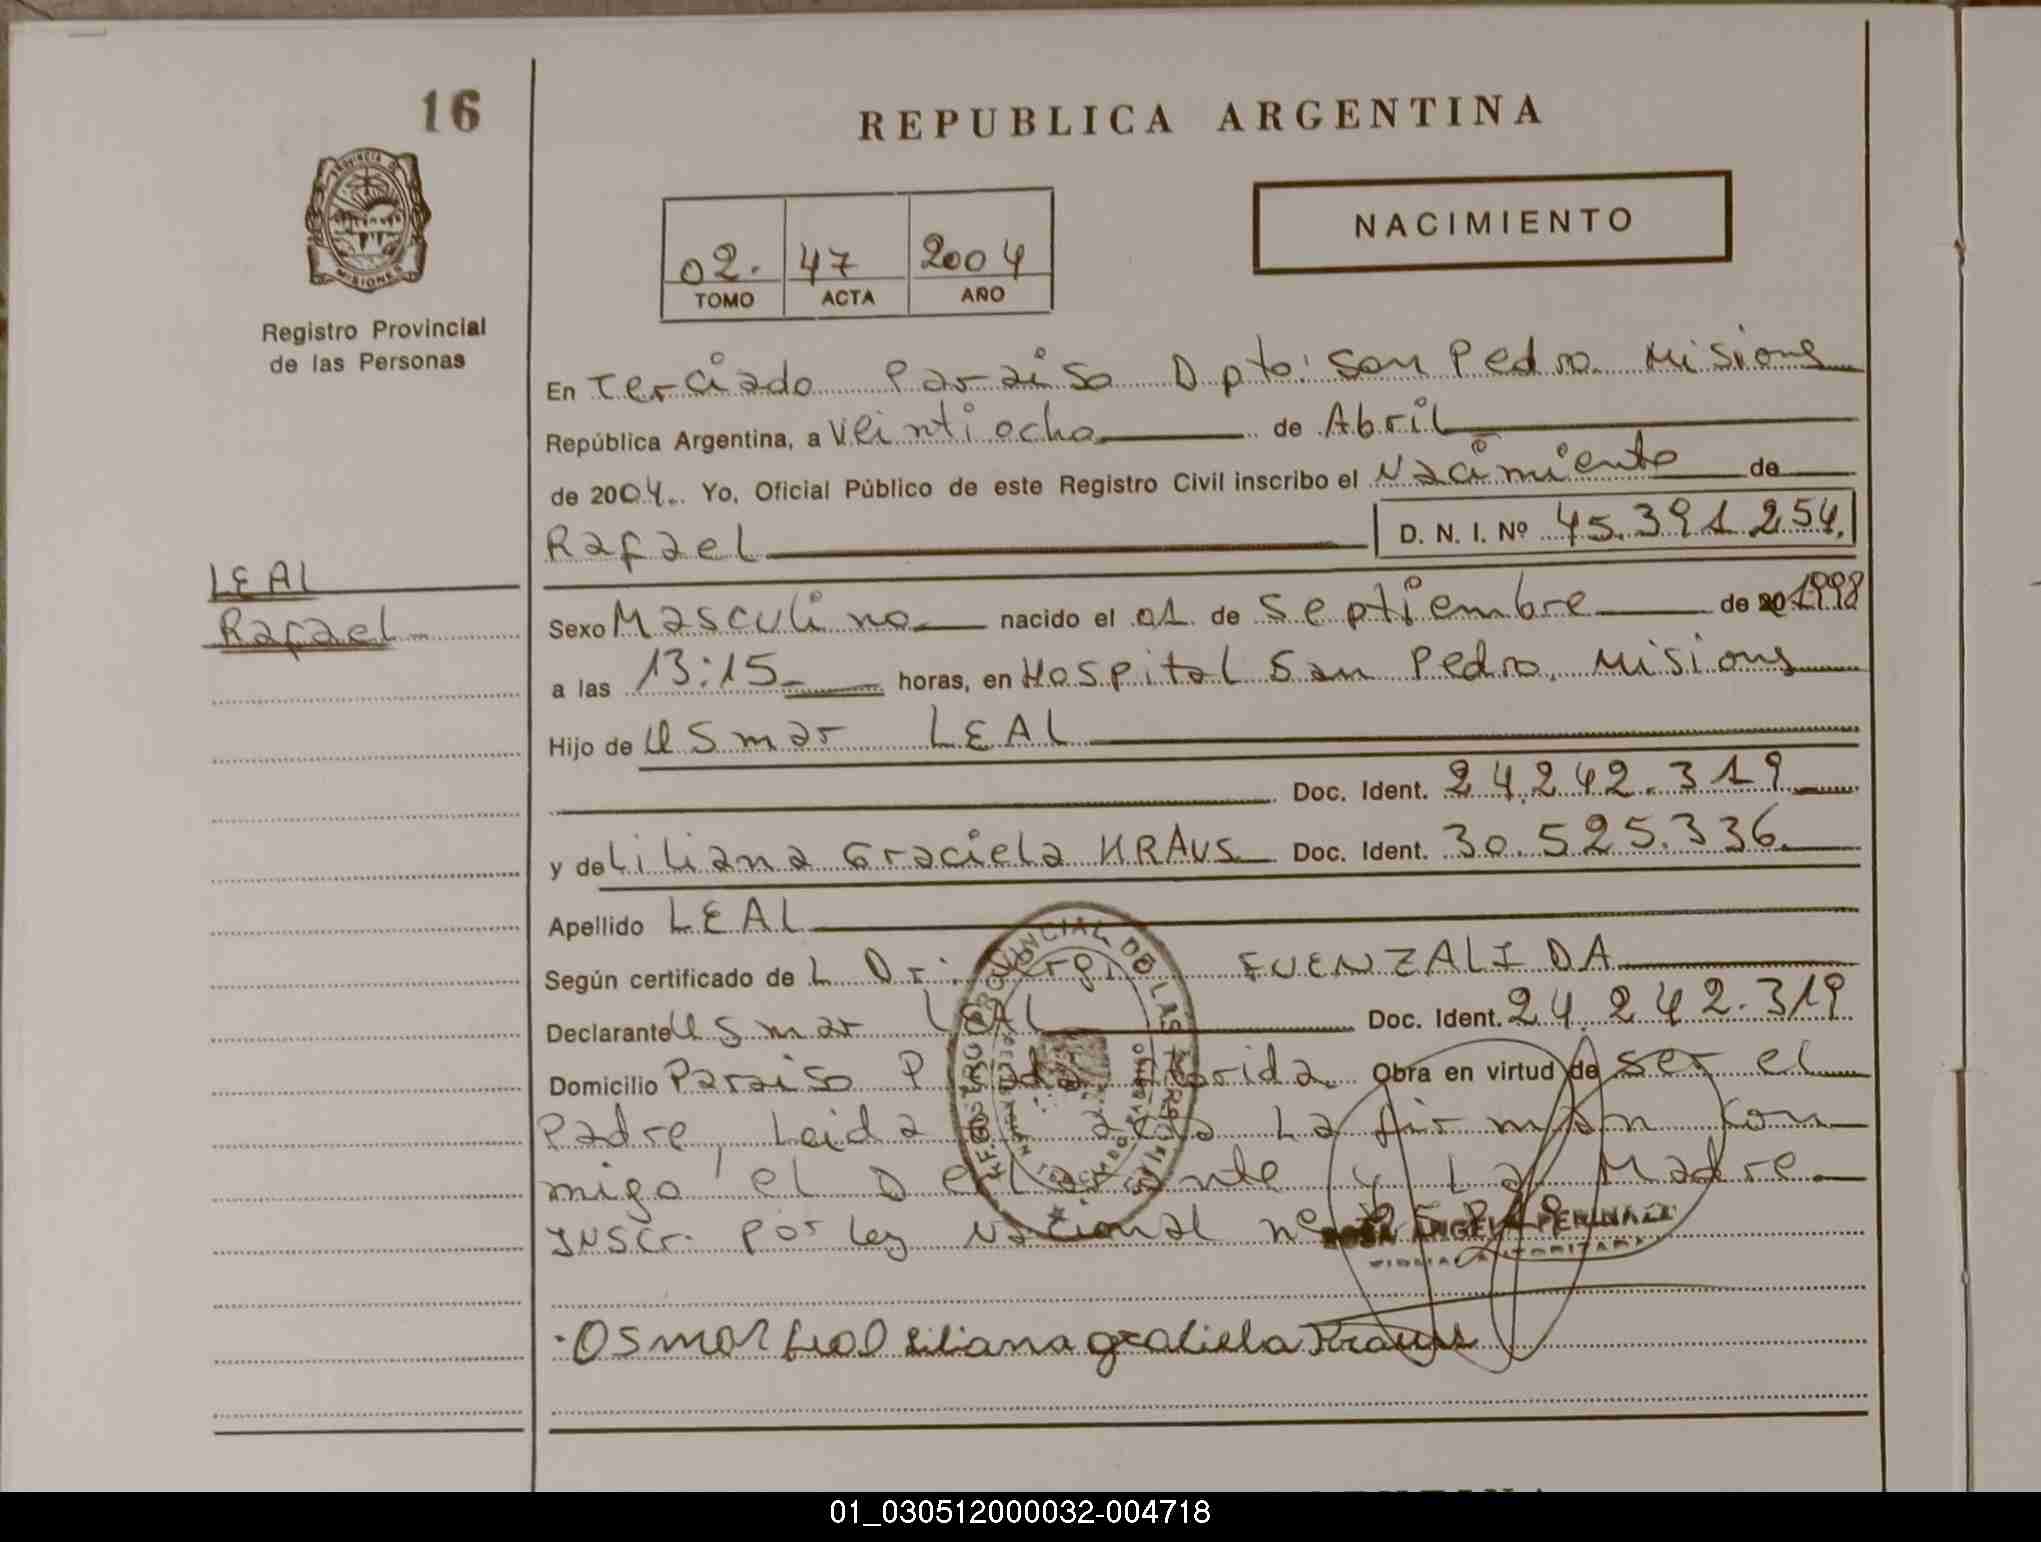 16
REPUBLICA ARGENTINA
PROVINCIA DE
MISIONES
Registro Provincial
de las Personas
NACIMIENTO
02. 47 2004
TOMO ACTA AÑO
En Terciado Paraiso Dpto: San Pedro. Misiones
República Argentina, a Veintiocho de Abril
de 2004. Yo, Oficial Público de este Registro Civil inscribo el Nacimiento de
Rafael D. N. I. Nº 45.391.254.
LEAL
Rafael
Sexo Masculino nacido el 01 de Septiembre de 1998
a las 13:15 horas, en Hospital San Pedro. Misiones
Hijo de Usmar LEAL
Doc. Ident. 24.242.319
y de Liliana Graciela KRAUS Doc. Ident. 30.525.336.
Apellido LEAL
Según certificado de L Dr. FUENZALIDA
Declarante Usmar LEAL Doc. Ident. 24.242.319
Domicilio Paraiso Florida. Obra en virtud de ser el
Padre, Leida acta La firman con
migo el Declarante y La Madre
Inscr. por Ley Nacional nº
ROSA ANGELA
Osmar Leal Liliana graciela Kraus
01_030512000032-004718